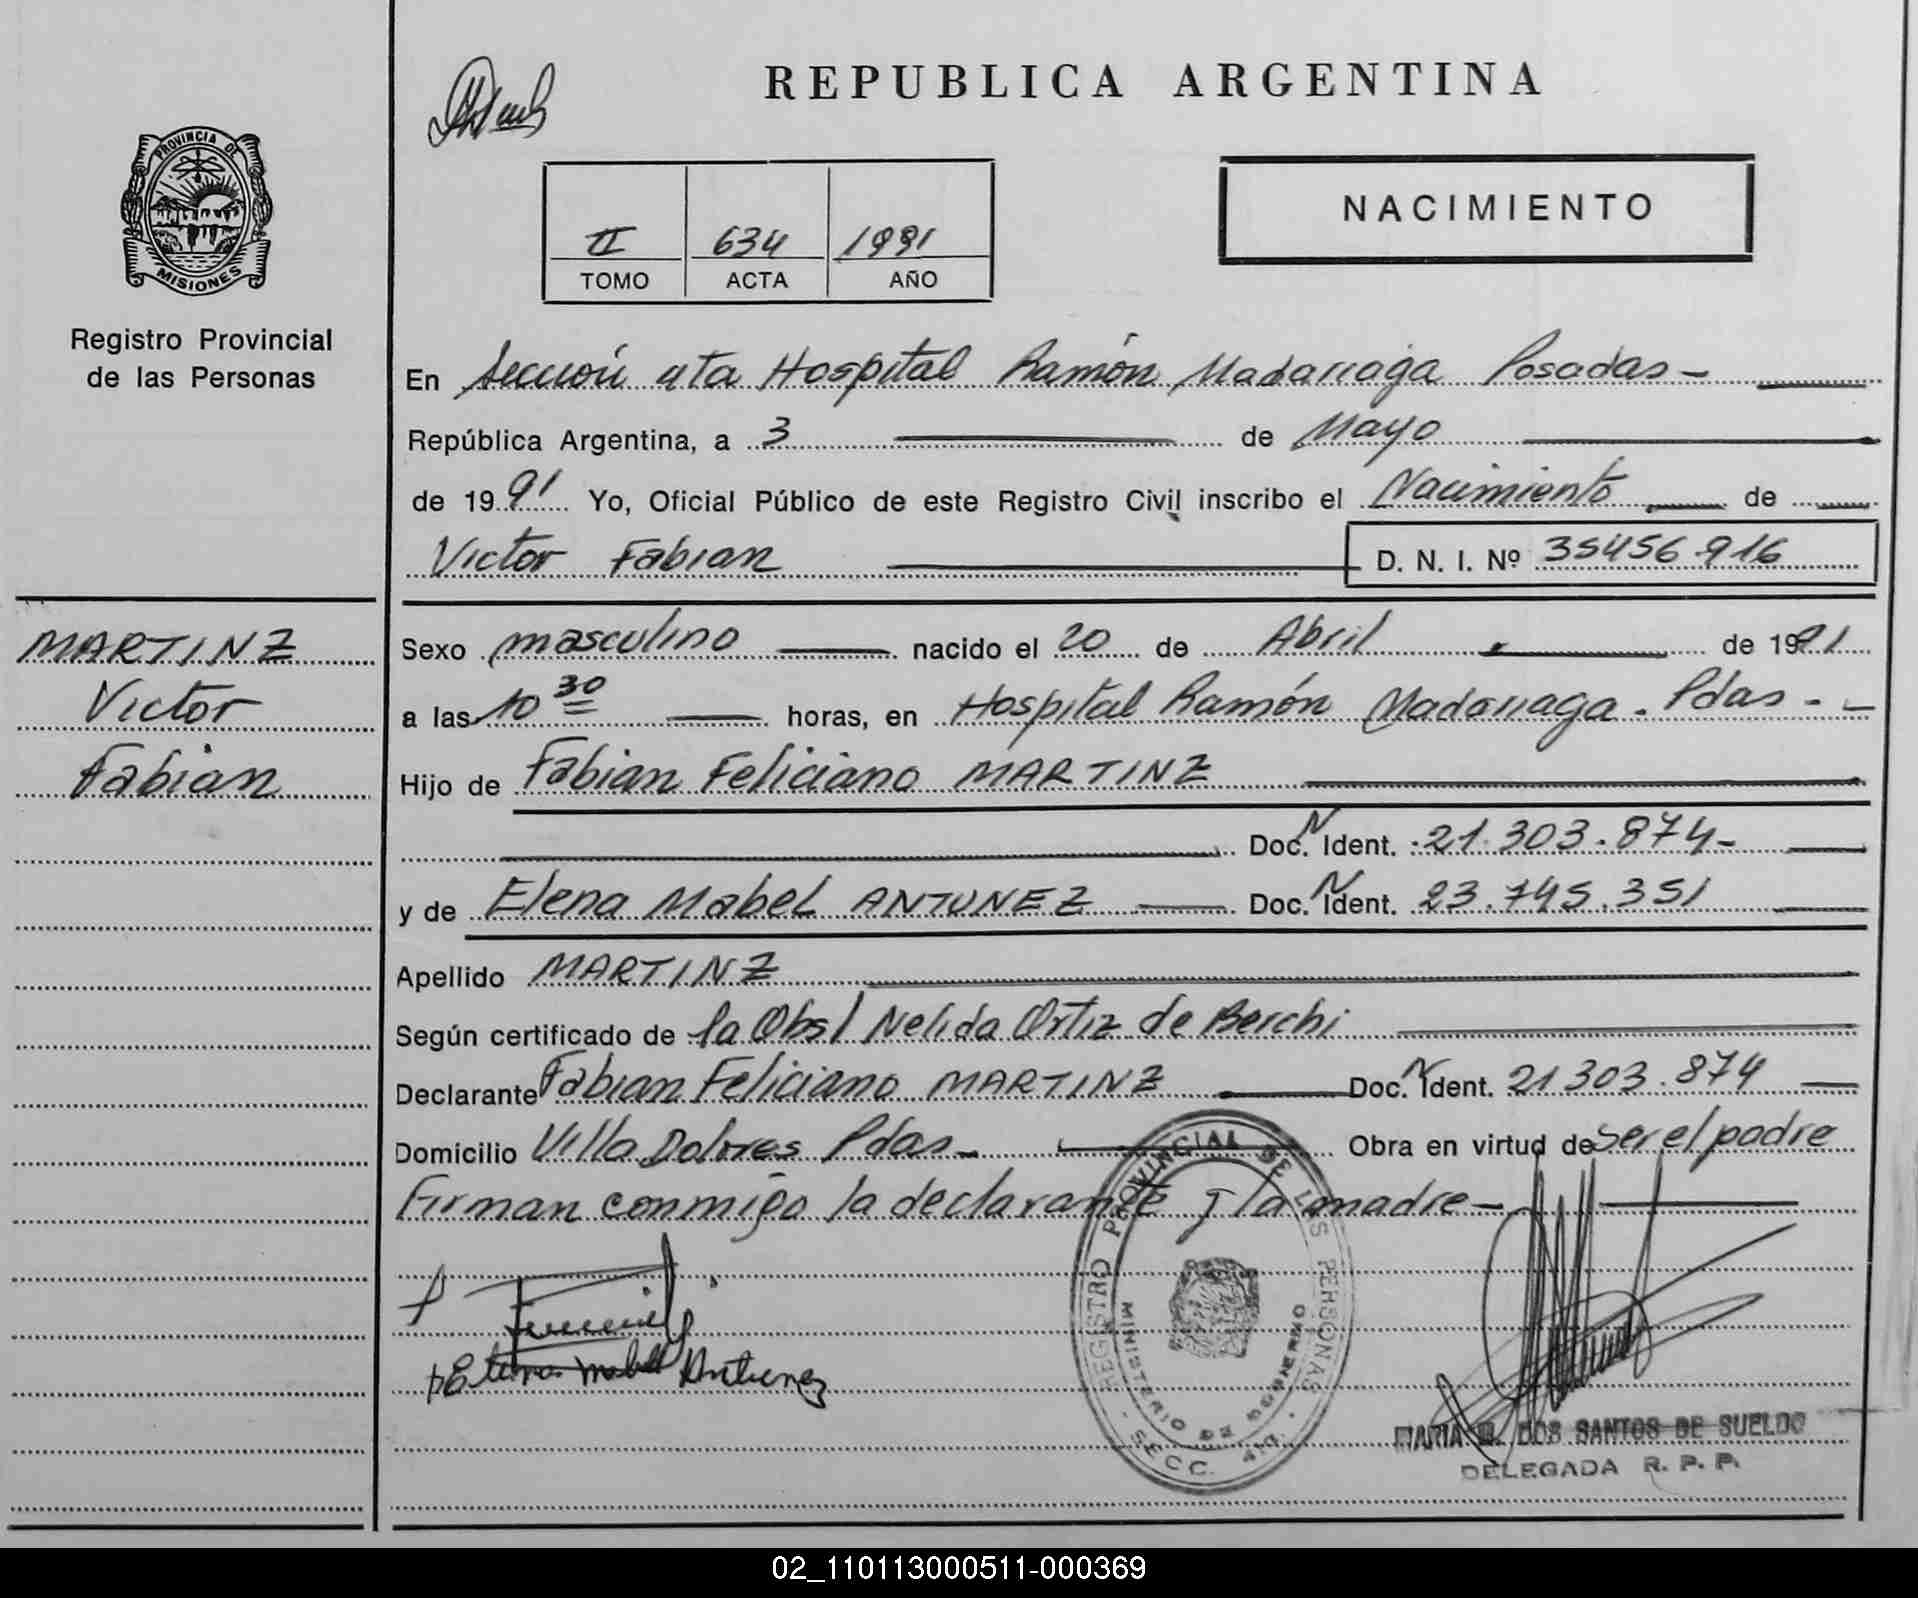 REPUBLICA ARGENTINA
PROVINCIA DE
MISIONES
Registro Provincial
de las Personas
NACIMIENTO
II 634 1991
TOMO ACTA AÑO
En Sección 4ta Hospital Ramón Madariaga Posadas -
República Argentina, a 3 de Mayo
de 1991 Yo, Oficial Público de este Registro Civil inscribo el Nacimiento de
Victor Fabian D. N. I. Nº 35456.916
MARTINZ
Victor
Fabian
Sexo masculino nacido el 20 de Abril de 1991
a las 10 30 horas, en Hospital Ramón Madariaga. Pdas -
Hijo de Fabian Feliciano MARTINZ
Doc. N Ident. 21.303.874-
y de Elena Mabel ANTUNEZ Doc. N Ident. 23.745.351
Apellido MARTINZ
Según certificado de la Obs/ Nelida Ortiz de Berchi
Declarante Fabian Feliciano MARTINZ Doc. N Ident. 21303.874
Domicilio Villa Dolores Pdas - Obra en virtud de ser el padre
Firman conmigo la declarante y la madre -
Elena Mabel Antunez
REGISTRO PROVINCIAL DE LAS PERSONAS
MINISTERIO DE GOBIERNO
SECC. 4ta.
MARIA DOS SANTOS DE SUELDO
DELEGADA R. P. P.
02_110113000511-000369